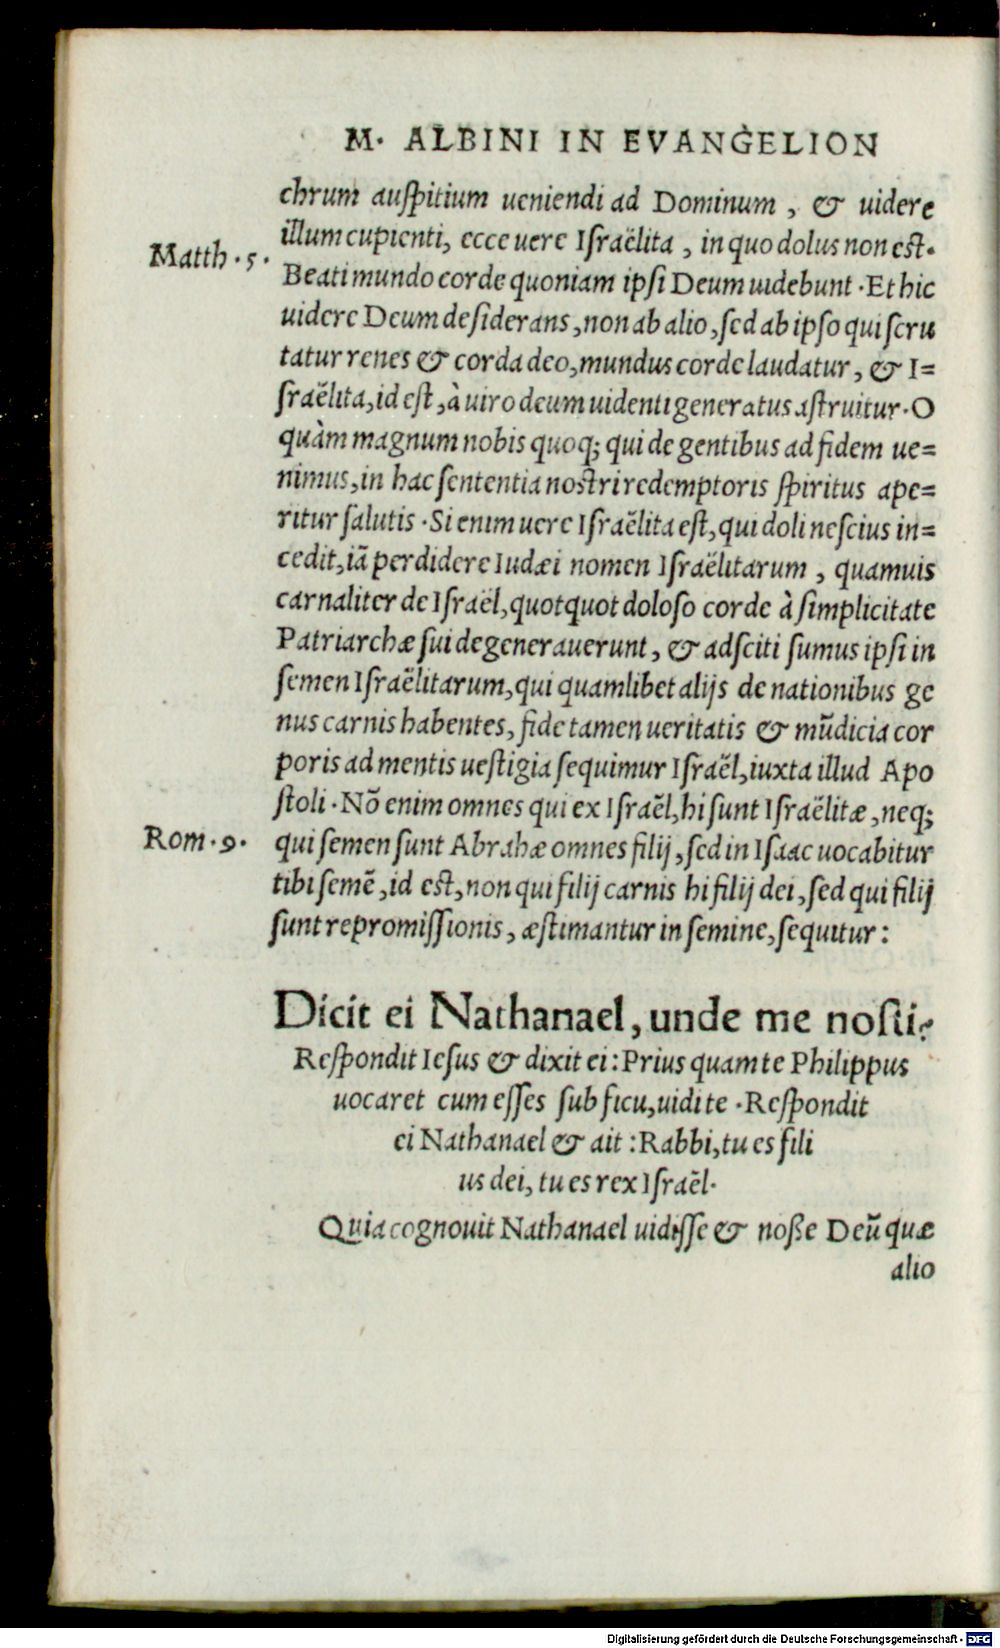 M. ALBINI IN EVANGELION
chrum auſpitium ueniendi ad Dominum , & uidere
illum cupienti, ecce uere Iſraëlita , in quo dolus non est.
Matth . 5 .
Beati mundo corde quoniam ipſi Deum uidebunt . Et hic
uidere Deum deſiderans , non ab alio , ſed ab ipſo qui ſcru
tatur renes & corda deo, mundus corde laudatur , & I=
ſraëlita, id eſt , à uiro deum uidenti generatus aſtruitur. O
quàm magnum nobis quoq; qui de gentibus ad fidem ue=
nimus, in hac ſententia nostri redemptoris ſpiritus ape=
ritur ſalutis . Si enim uere Iſraëlita eſt, qui doli neſcius in=
cedit, iã perdidere Iudæi nomen Iſraëlitarum , quamuis
carnaliter de Iſraël, quotquot doloſo corde à ſimplicitate
Patriarchæ ſui degenerauerunt , & adſciti ſumus ipſi in
ſemen Iſraëlitarum, qui quamlibet alijs de nationibus ge
nus carnis habentes, fide tamen ueritatis & mũdicia cor
poris ad mentis ueſtigia ſequimur Iſraël, iuxta illud Apo
ſtoli . Nõ enim omnes qui ex Iſraël, hi ſunt Iſraëlitæ , neq;
Rom . 9 .
qui ſemen ſunt Abrahæ omnes filij , ſed in Iſaac uocabitur
tibi ſemẽ , id est, non qui filij carnis hi filij dei , ſed qui filij
ſunt repromiſſionis , æſtimantur in ſemine, ſequitur :
Dicit ei Nathanael, unde me noſti?
Reſpondit Ieſus & dixit ei : Prius quam te Philippus
uocaret cum eſſes ſub ficu, uidi te . Reſpondit
ei Nathanael & ait : Rabbi, tu es fili
us dei, tu es rex Iſraël.
Quia cognouit Nathanael uidiſſe & noße Deũ quæ
alio
Digitalisierung gefördert durch die Deutsche Forschungsgemeinschaft - DFG